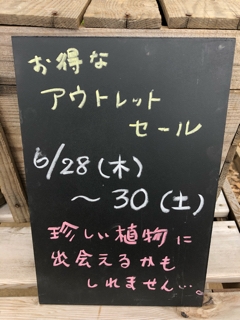 お得な
アウトレット
セール
6/28(木)
～30(土)
珍しい植物に
出会えるかも
しれません…。